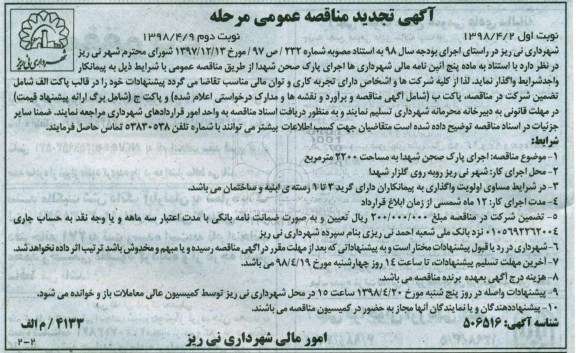 آگهی تجدید مناقصه عمومی مرحله
نوبت اول ۱۳۹۸/۴/۲ نوبت دوم ۱۳۹۸/۴/۹
شهرداری نی ریز در راستای اجرای بودجه سال ۹۸ به استناد مصوبه شماره ۲۳۲ / ص ۹۷ / مورخ ۱۳۹۷/۱۲/۱۳ شورای محترم شهر نی ریز
در نظر دارد با استناد به ماده پنج آئین نامه مالی شهرداری ها اجرای پارک صحن شهدا از طریق مناقصه عمومی با شرایط ذیل به پیمانکار
واجدشرایط واگذار نماید. لذا از کلیه شرکت ها و اشخاص دارای تجربه کاری و توان مالی مناسب تقاضا می گردد پیشنهادات خود را در قالب پاکت الف شامل
تضمین شرکت در مناقصه، پاکت ب (شامل آگهی مناقصه و برآورد و نقشه ها و مدارک درخواستی اعلام شده) و پاکت ج (شامل برگ ارائه پیشنهاد قیمت)
در مهلت قانونی به دبیرخانه محرمانه شهرداری تسلیم نمایند و به منظور دریافت اسناد مناقصه به واحد امور قراردادهای شهرداری مراجعه نمایند. ضمنا سایر
جزئیات در اسناد مناقصه توضیح داده شده است متقاضیان جهت کسب اطلاعات بیشتر می توانند با شماره تلفن ۵۳۸۳۰۵۳۸ تماس حاصل فرمایند.
شرایط:
۱- موضوع مناقصه: اجرای پارک صحن شهدا به مساحت ۴۲۰۰ مترمربع
۲- محل اجرای کار: شهر نی ریز روبه روی گلزار شهدا
۳- در شرایط مساوی اولویت واگذاری به پیمانکاران دارای گرید ۴ تا ۱ رسته ی ابنیه و ساختمان می باشد.
۴- مدت اجرای کار: ۱۲ ماه شمسی از زمان ابلاغ قرارداد
۵- تضمین شرکت در مناقصه مبلغ ۲۰۰/۰۰۰/۰۰۰ ریال تعیین و به صورت ضمانت نامه بانکی با مدت اعتبار سه ماهه و یا وجه نقد به حساب جاری
۰۱۰۵۶۹۲۲۶۲۰۰۴ نزد بانک ملی شعبه احمد نی ریزی بنام سپرده شهرداری نی ریز
۶- شهرداری در رد یا قبول پیشنهادات مختار است و به پیشنهاداتی که بعد از مهلت مقرر در آگهی مناقصه رسیده و یا مبهم و مخدوش باشد ترتیب اثر داده نخواهد شد.
۷- آخرین مهلت تسلیم پیشنهادات، تا ساعت ۱۴ روز چهارشنبه مورخ ۹۸/۴/۱۹ می باشد.
۸- هزینه درج آگهی بعهده برنده مناقصه می باشد.
۹- پیشنهادات واصله در روز پنج شنبه مورخ ۱۳۹۸/۴/۲۰ ساعت ۱۵ در محل شهرداری نی ریز توسط کمیسیون عالی معاملات باز و خوانده می شود.
۱۰- پیشنهاددهندگان و یا نمایندگان آنها مجاز به حضور در کمیسیون مناقصه می باشند.
شناسه آگهی: ۵۰۶۵۱۶ ۴۱۳۳ / م الف
امور مالی شهرداری نی ریز
۲-۲